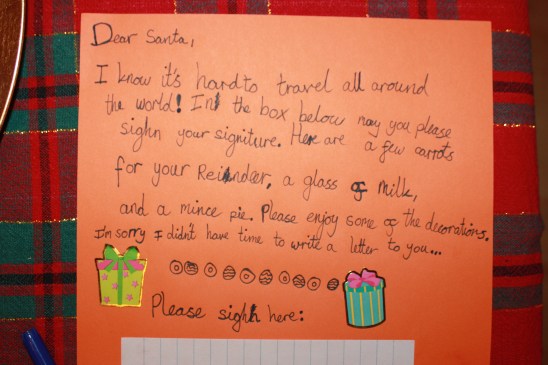 Dear Santa,
I know it's hard to travel all around
the world! In the box below may you please
sighn your signiture. Here are a few carrots
for your Reindeer, a glass of Milk,
and a mince pie. Please enjoy some of the decorations.
I'm sorry I didn't have time to write a letter to you...
Please sighn here: